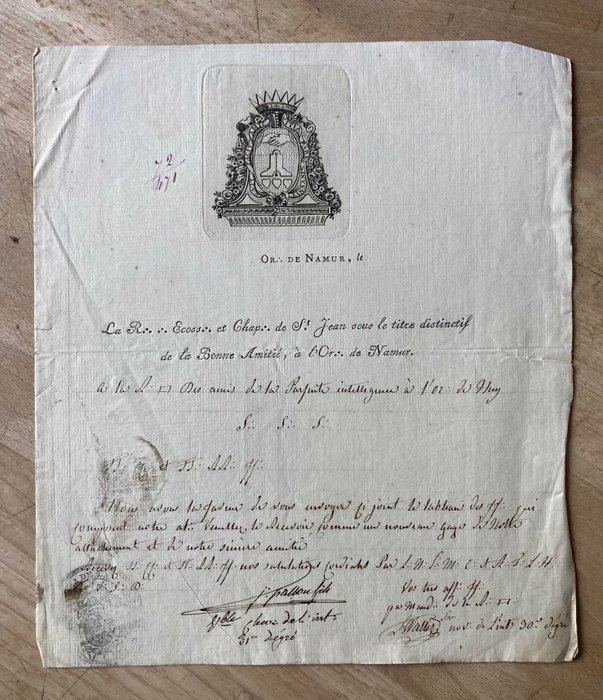 72
471
OR∴ DE NAMUR, le
La R∴ ∴ Ecoss∴ et Chap∴ de St. Jean sous le titre distinctif
de la Bonne Amitié, à l'Or∴ de Namur.
a la R∴ □ Des amis de la Parfaite intelligence à l'or∴ de Huy
S∴ S∴ S∴
et TT∴ RR∴ ff∴
Nous avons la faveur de vous envoyer ci joint le tableau des ff∴ qui
composent notre at∴ veuillez le recevoir comme un nouveau gage de notre
attachement et de notre sincère amitié
et nos salutations cordiales Par L∴ N∴ S∴ M∴ C∴ et A∴ T∴ L∴ H∴
et S∴ D∴
fallon fils
Vos tres aff∴ ff∴
par Mand∴ de la R∴ □∴
degré
30e dégré